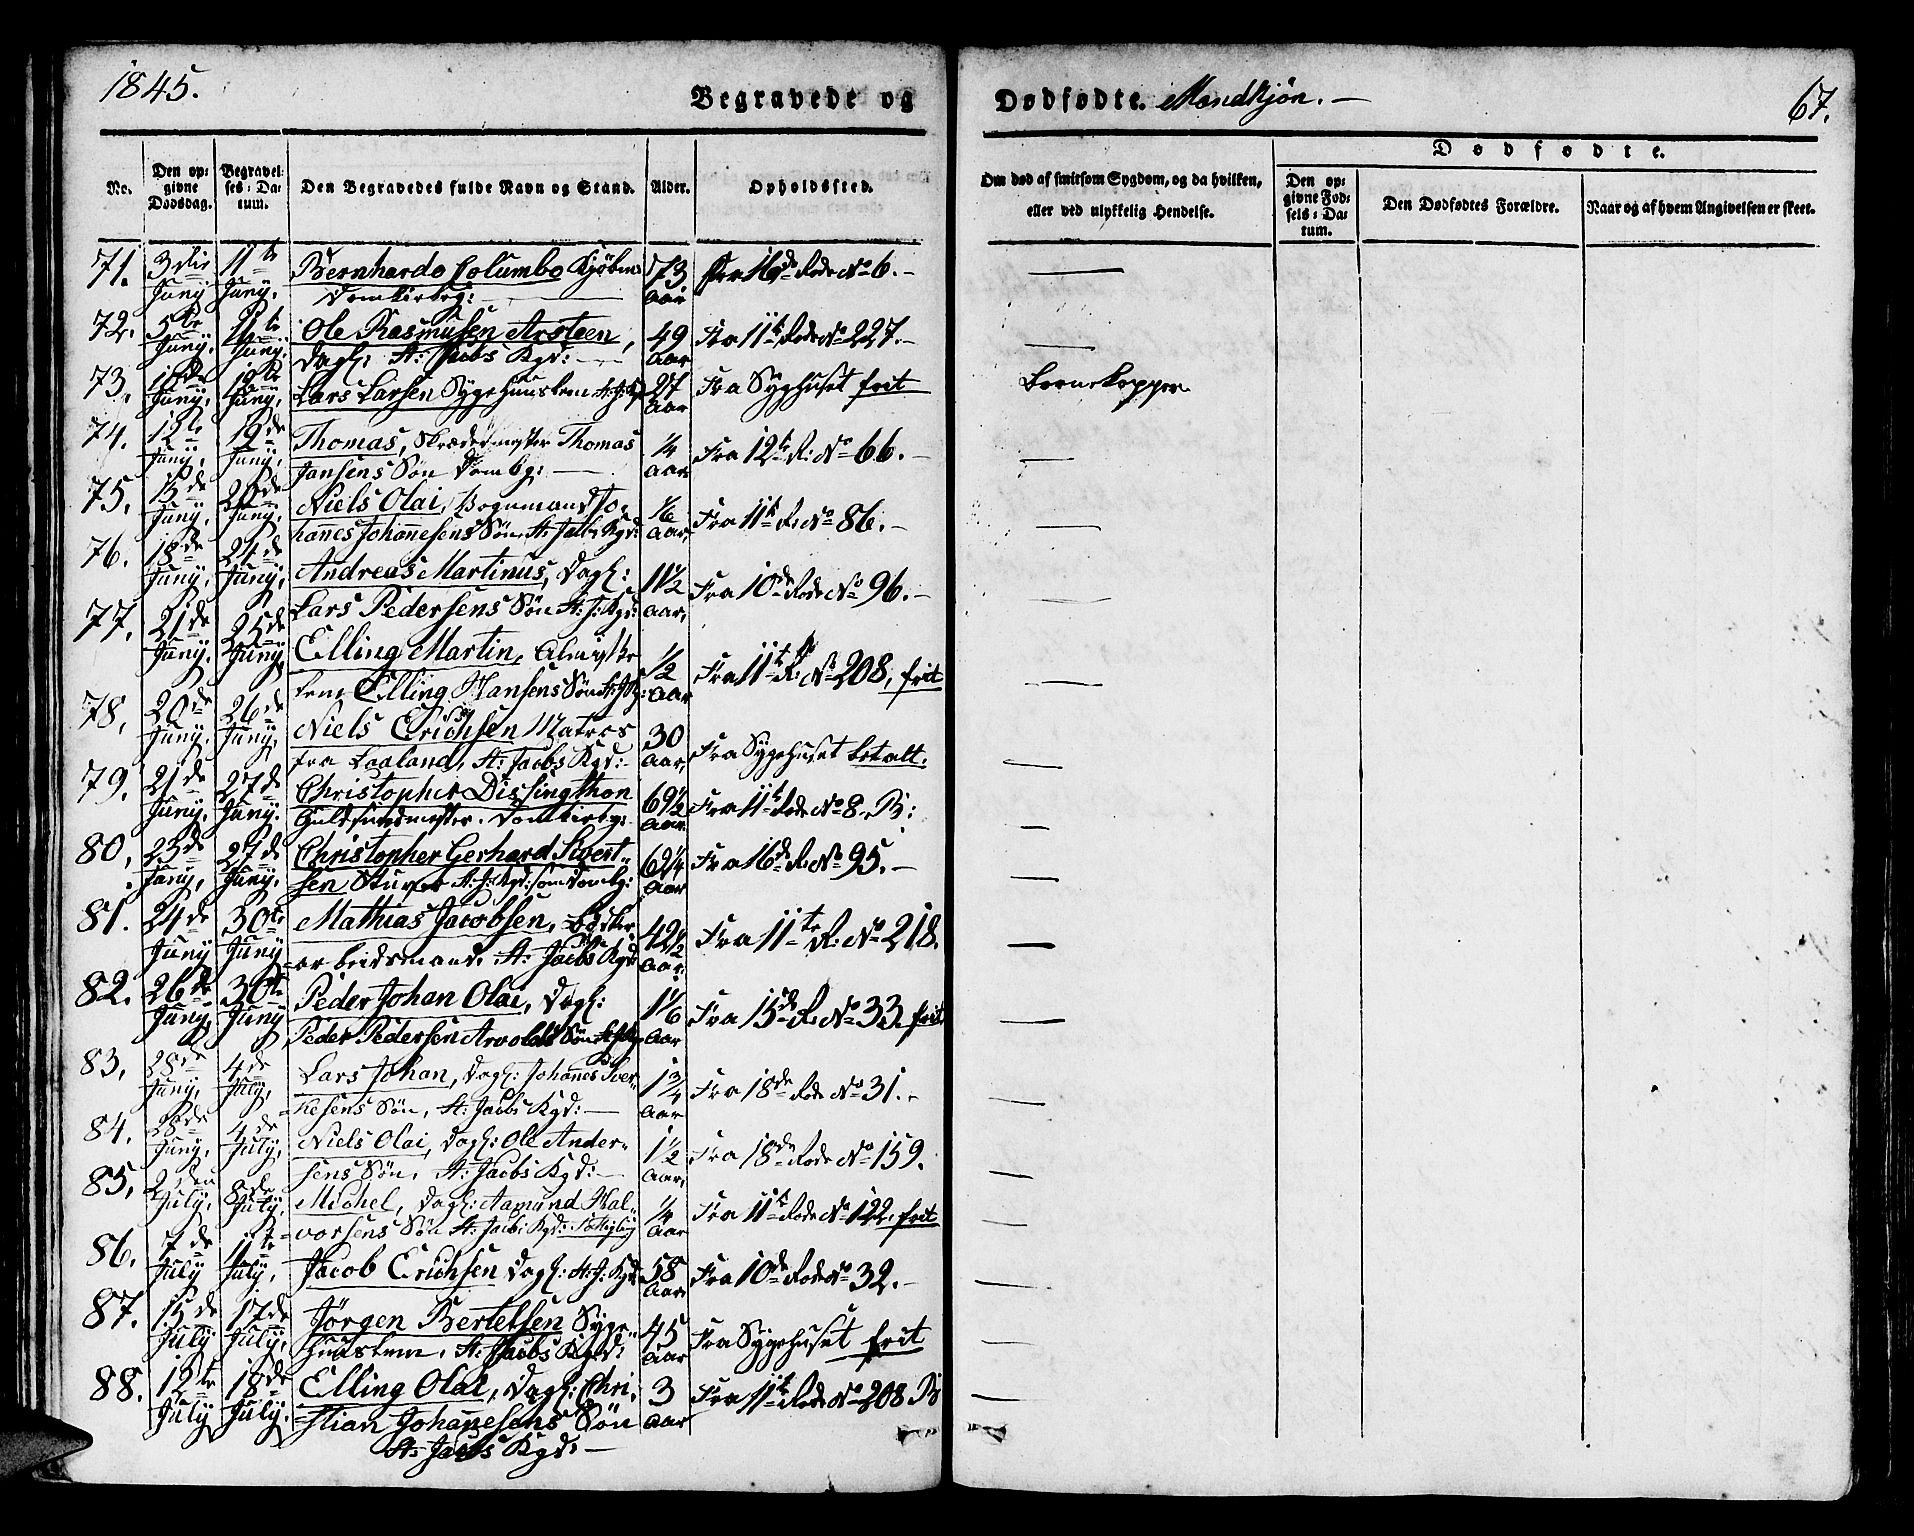 1845.
Begravede og Dødfødte. Mandkjøn. —
67.
Dødfødte.
No.
Den opgivne Dødsdag.
Begravelses-Datum.
Den Begravedes fulde Navn og Stand.
Alder.
Opholdssted.
Om død af smitsom Sygdom, og da hvilken, eller ved ulykkelig Hendelse.
Den opgivne Fødsels-Datum.
Den Dødfødtes Forældre.
Naar og af hvem Angivelsen er skeet.
71. 3die 11te Bernhardo Columbo Kjøbm: 73 Fra 16de Rode No 6. —
Juny Juny. Domkirkeg: — Aar
72. 5te 11te Ole Rasmusen Arsteen, 49 Fra 11te Rode No 227. —
Juny. Juny. Dagl: St: Jacobs Kgd: — Aar
73. Lars Larsen Sygehuuslem St: J: 27 Fra Sygehuset frit Børnekopper
Juny, Juny, Aar
74. 12te 19de Thomas, Skrædermester Thomas 1/4 Fra 12te R: No 66. —
Juny, Juny, Jansens Søn Domkg: — Aar
75. 15de 20de Niels Olai, Bogmand Jo- 1/6 Fra 11te R: No 86. —
Juny, Juny, hannes Johannesens Søn, St: Jacobs Kgd: Aar,
76. 18de 24de Andreas Martinus, Dagl: 11 1/2 Fra 10de Rode No 96. —
Juny, Juny, Lars Pedersens Søn St: J: Kgd: Aar,
77. 21de 25de Elling Martin, Almisse 1/2 Fra 11te R: No 208, frit
Juny, Juny, lem Elling Hansens Søn St: J: Kg: Aar
78, 20de 26de Niels Erichsen Matros 30 Fra Sygehuset betalt.
Juny, Juny, fra Laaland, St: Jacobs Kgd: Aar,
79. 21de 27de Christopher Dissingthon 69 1/2 Fra 11te Rode No 8. B:
Juny, Juny. Guldsmedmester. Domkirkeg: Aar
80, 23de 27de Christopher Gerhard Sivert- 69 1/4 Fra 16de R: No 95. —
Juny, Juny. sen Stuver St: J: Kgd: som Domkg: Aar
81. 24de 30te Mathias Jacobsen, 42 1/2 Fra 11te R: No 218.
Juny Juny -arbeidsmand, St: Jacobs Kgd: Aar:
82. 26de 30te Peder Johan Olai, Dagl: 1 1/6 Fra 15de R: No 33. frit
Juny, Juny Peder Pedersen Arvolds Søn Aar
83, 28de 4de Lars Johan, Dagl: Johannes Iver- 1 3/4 Fra 18de Rode No 31. —
Juny, July, -kesens Søn, St: Jacobs Kgd: — Aar
84. 28de 4de Niels Olai, Dagl: Ole Ander- 1 1/2 Fra 18de Rode No 159.
Juny, July, sens Søn, St: Jacobs Kgd: — Aar,
85, 2den 8de Michel, Dagl: Aamund Hal- 1/4 Fra 11te Rode No 122, frit
July, July, -vorsens Søn St: Jacobs Kgd: Aar
86. 7de 11te Jacob Erichsen Dagl: St: J: Kgd: 58 Fra 10de Rode No 32. —
July July, Aar
87. 15de 17de Jörgen Bertelsen Syge- 45 Fra Sygehuset frit
July July, huuslem, St: Jacobs Kgd: Aar
88. 12te 18de Elling Olai, Dagl: Chri- 3 Fra 11te Rode No 208 B
July July. stian Johannesens Søn Aar
St: Jacobs Kgd: —